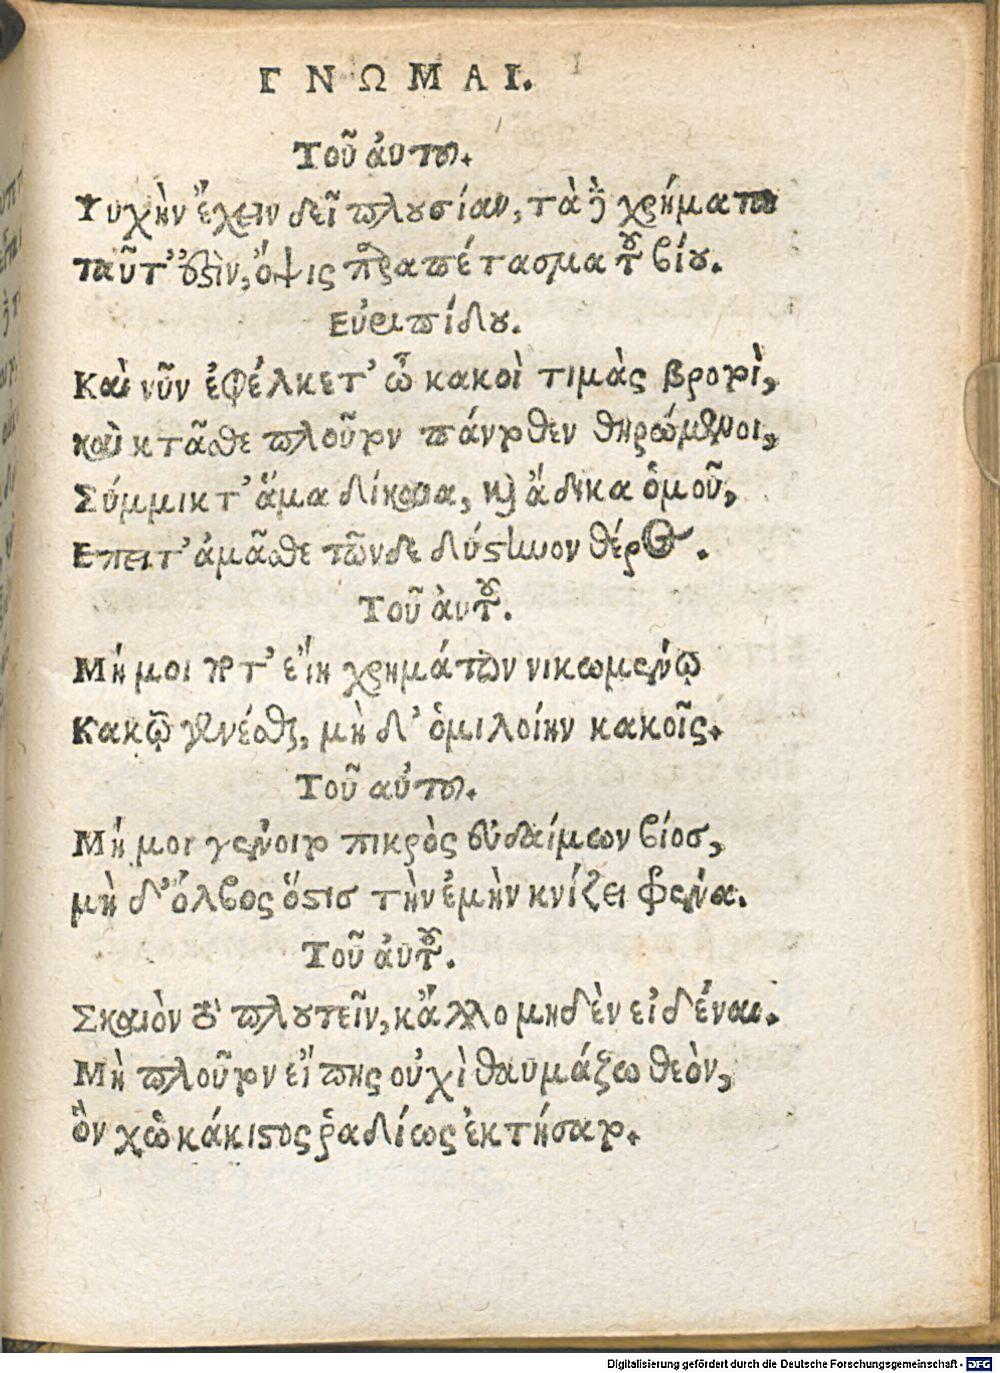 ΓΝΩΜΑΙ.
Τοῦ ἀυτου.
Ψυχὴν ἔχειν δεῖ πλουσίαν, τὰ δὲ χρήματα
ταῦτ' ἐστὶν, ὄψις παραπέτασμα τοῦ βίου.
Εὐριπίδου.
Καὶ νῦν ἐφέλκετ' ὦ κακοὶ τιμὰς βροτοὶ,
καὶ κτᾶσθε πλοῦτον πάντοθεν θηρώμενοι,
Σύμμικτ' ἅμα δίκαια, καὶ ἄδικα ὁμοῦ,
Επειτ' ἀμᾶσθε τῶνδε δύστηνον θέρος.
Τοῦ ἀυτοῦ.
Μή μοι ποτ' εἴη χρημάτων νικωμένῳ
Κακῷ γενέσθαι, μὴ δ' ὁμιλοίην κακοῖς.
Τοῦ αὐτου.
Μή μοι γένοιτο πικρὸς εὐδαίμων βίοσ,
μὴ δ' ὄλβος ὅστισ τὴν ἐμὴν κνίζει φρένα.
Τοῦ ἀυτοῦ.
Σκαιὸν τὸ πλουτεῖν, κἄλλο μηδὲν εἰδέναι.
Μὴ πλοῦτον εἴπης οὐχὶ θαυμάζω θεὸν,
ὃν χὠ κάκιστος ῥαδίως ἐκτήσατο.
Digitalisierung gefördert durch die Deutsche Forschungsgemeinschaft - DFG